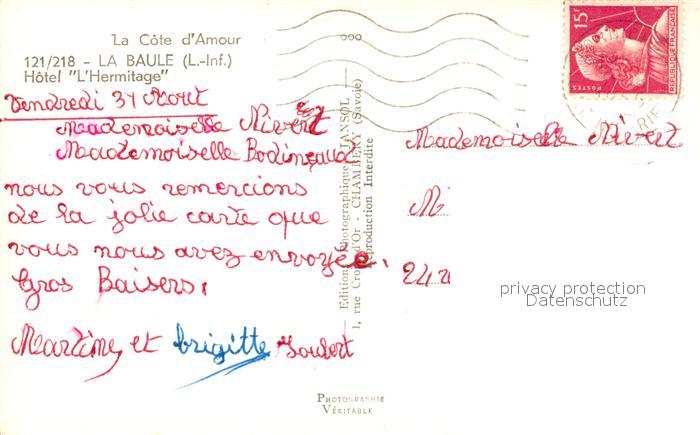 La Côte d'Amour
121/218 - LA BAULE (L.-Inf.)
Hôtel "L'Hermitage"
Vendredi 31 Août
Mademoiselle Nivert
Mademoiselle Bodineaud
nous vous remercions
de la jolie carte que
vous nous avez envoyée.
Gros Baisers,
Martine et brigitte Joubert
Editions Photographiques JANSOL
1, rue Croix d'Or - CHAMBÉRY (Savoie)
Reproduction Interdite
PHOTOGRAPHIE
VÉRITABLE
15F
POSTES
REPUBLIQUE FRANÇAISE
Mademoiselle Nivert
privacy protection
Datenschutz